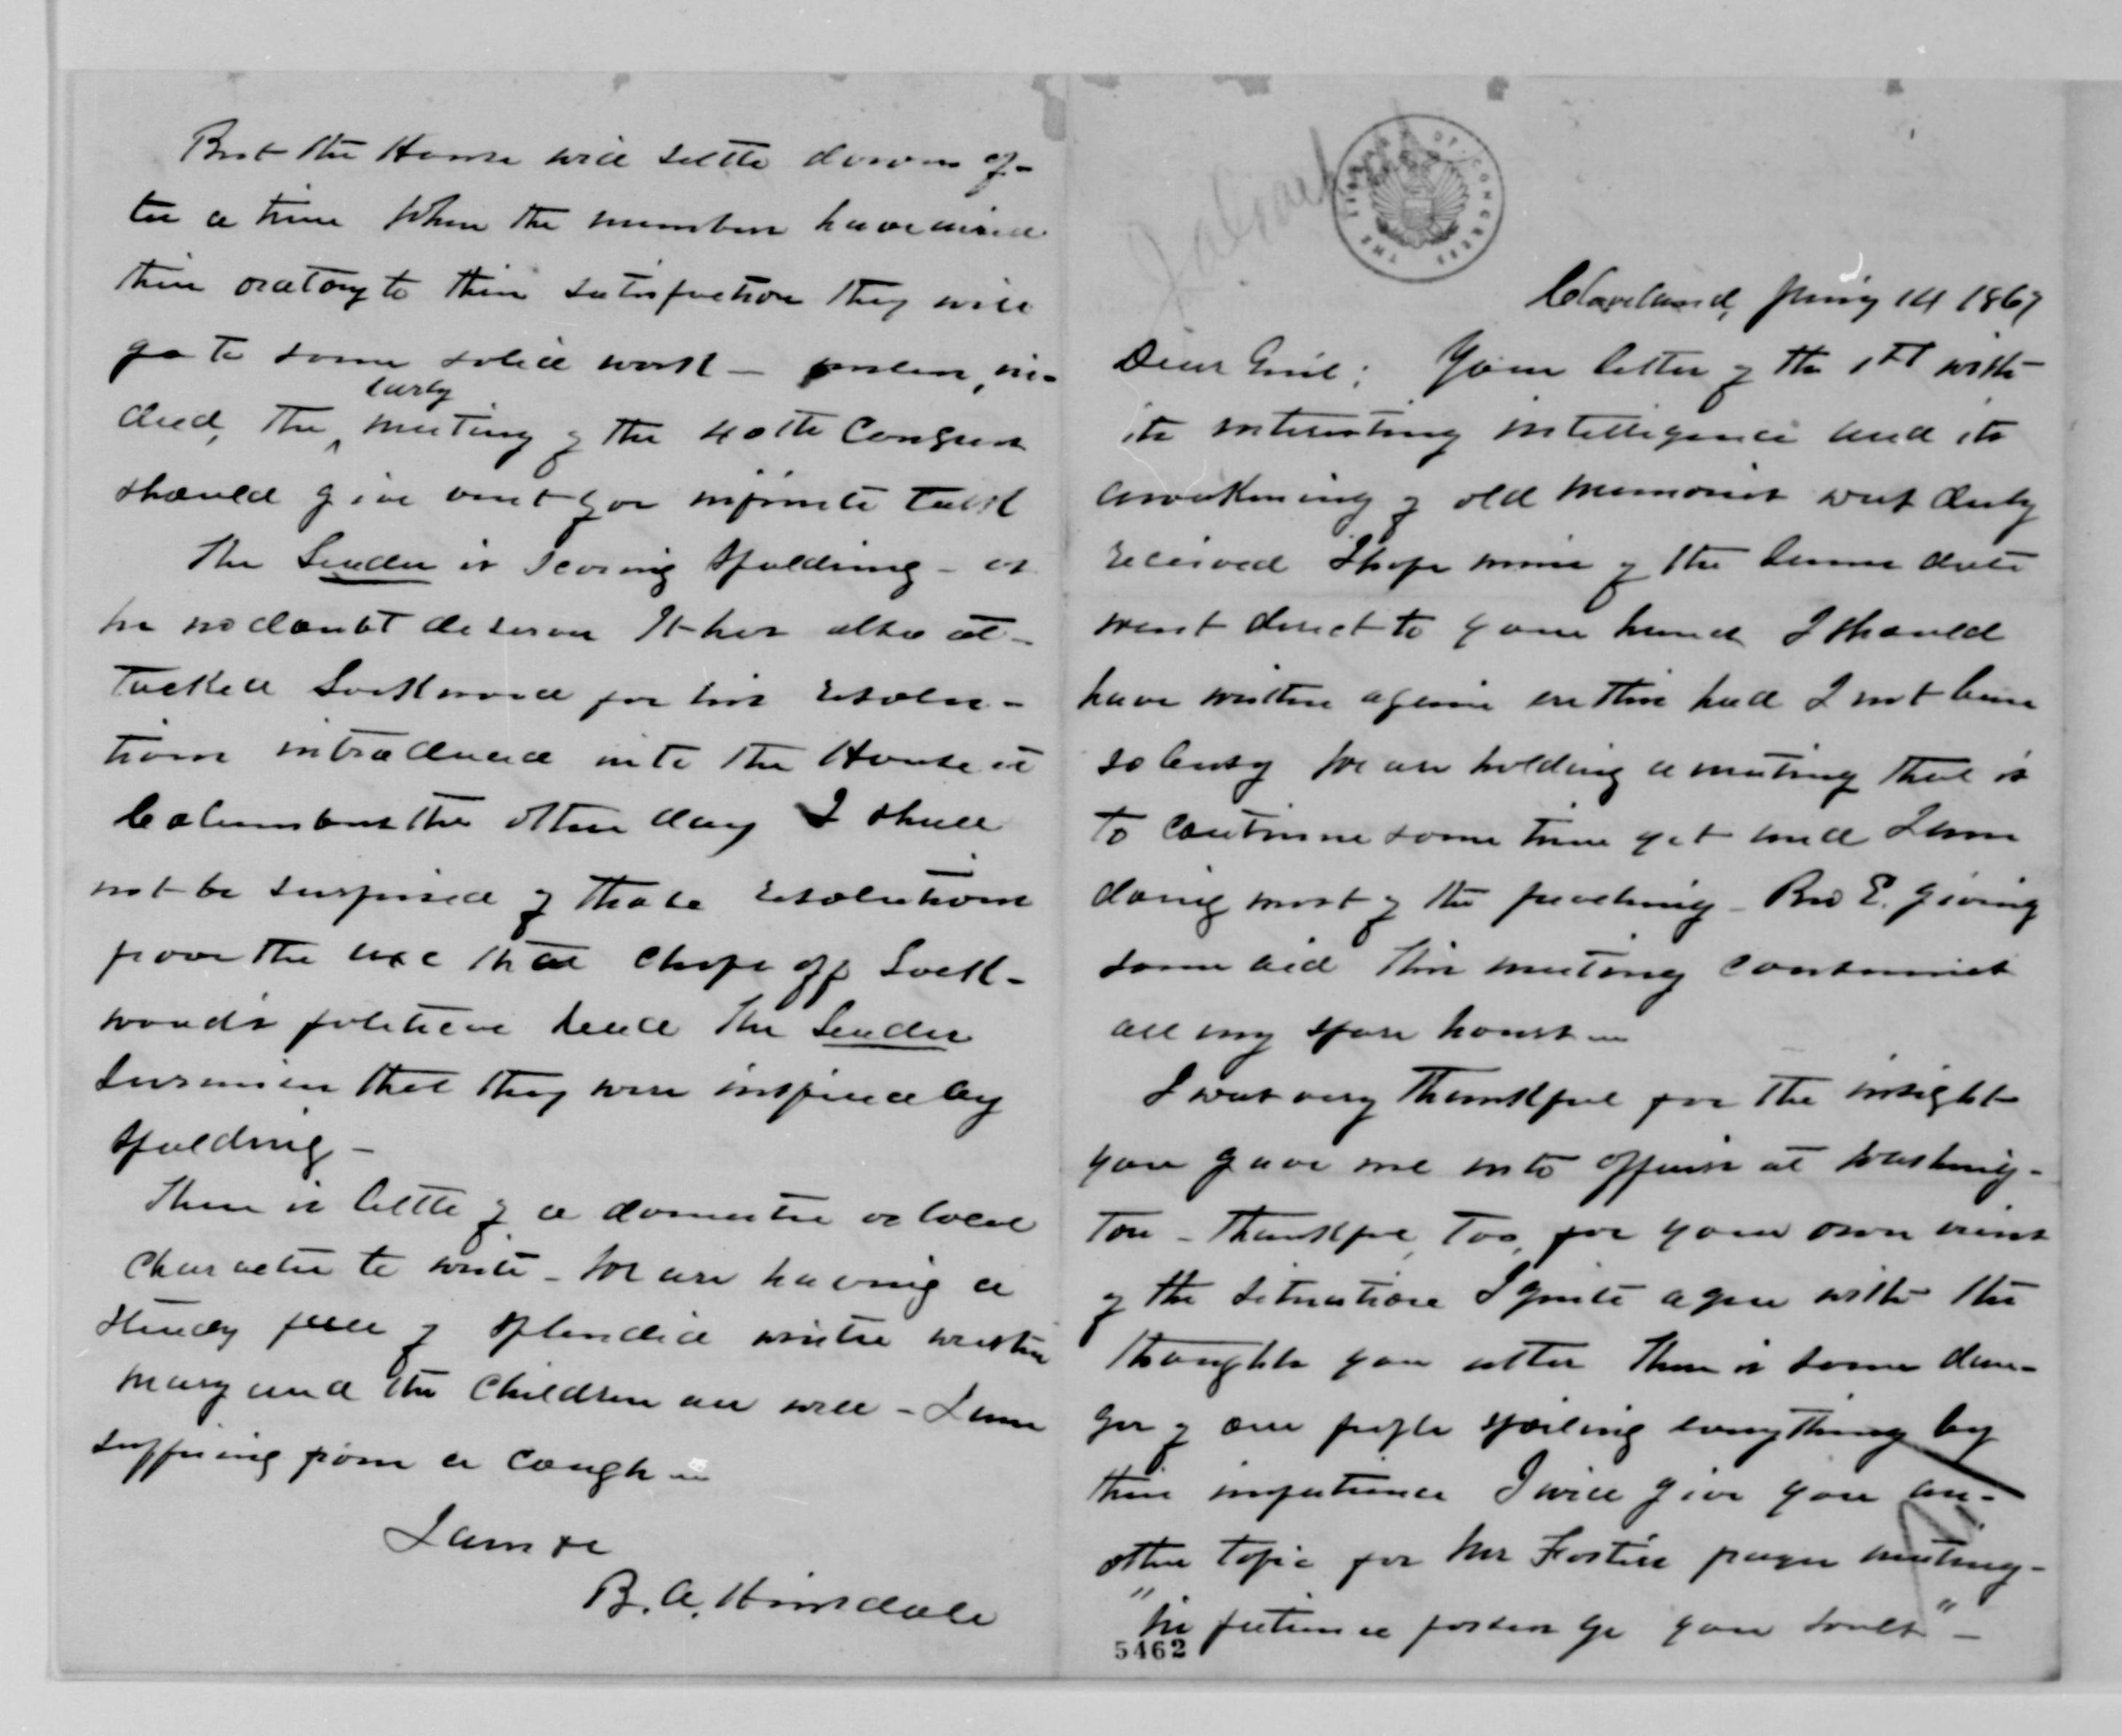 THE LIBRARY OF CONGRESS
Cleaveland, Jan'y 14 1867
Dear Gen'l: Your letter of the 1st with
its interesting intelligence and its
awakening of old memories was duly
received I hope mine of the same date
went direct to your hand I should
have written again ere this had I not been
so busy We are holding a meeting that is
to continue some time yet and I am
doing most of the preaching - Bro E. giving
some aid This meeting consumes
all my spare hours —
I was very thankful for the insight
you gave me into affairs at Washing-
ton - thankful, too, for your own views
of the situation I quite agree with the
thoughts you utter There is some dan-
ger of our people spoiling everything by
their impatience I will give you an-
other topic for Mr prayer meeting -
"In patience possess ye your souls" -
5462
But the House will settle down af-
ter a time When the members have aired
their oratory to their satisfaction they will
go to some solid work — unless, in-
early
deed, the ^ meeting of the 40th Congress
should give vent for infinite talk
The Leader is scoring Spalding - as
he no doubt deserves It has also at-
tacked Lockwood for his resolu-
tions introduced into the House at
Columbus the other day I shall
not be surprised if those resolutions
prove the axe that chops off Lock-
wood's political head The Leader
surmises that they were inspired by
Spalding -
There is little of a domestic or local
character to write - We are having a
steady pull of splendid winter weather
Mary and the children are well - I am
suffering from a cough —
I am &c
B. A. Hinsdale